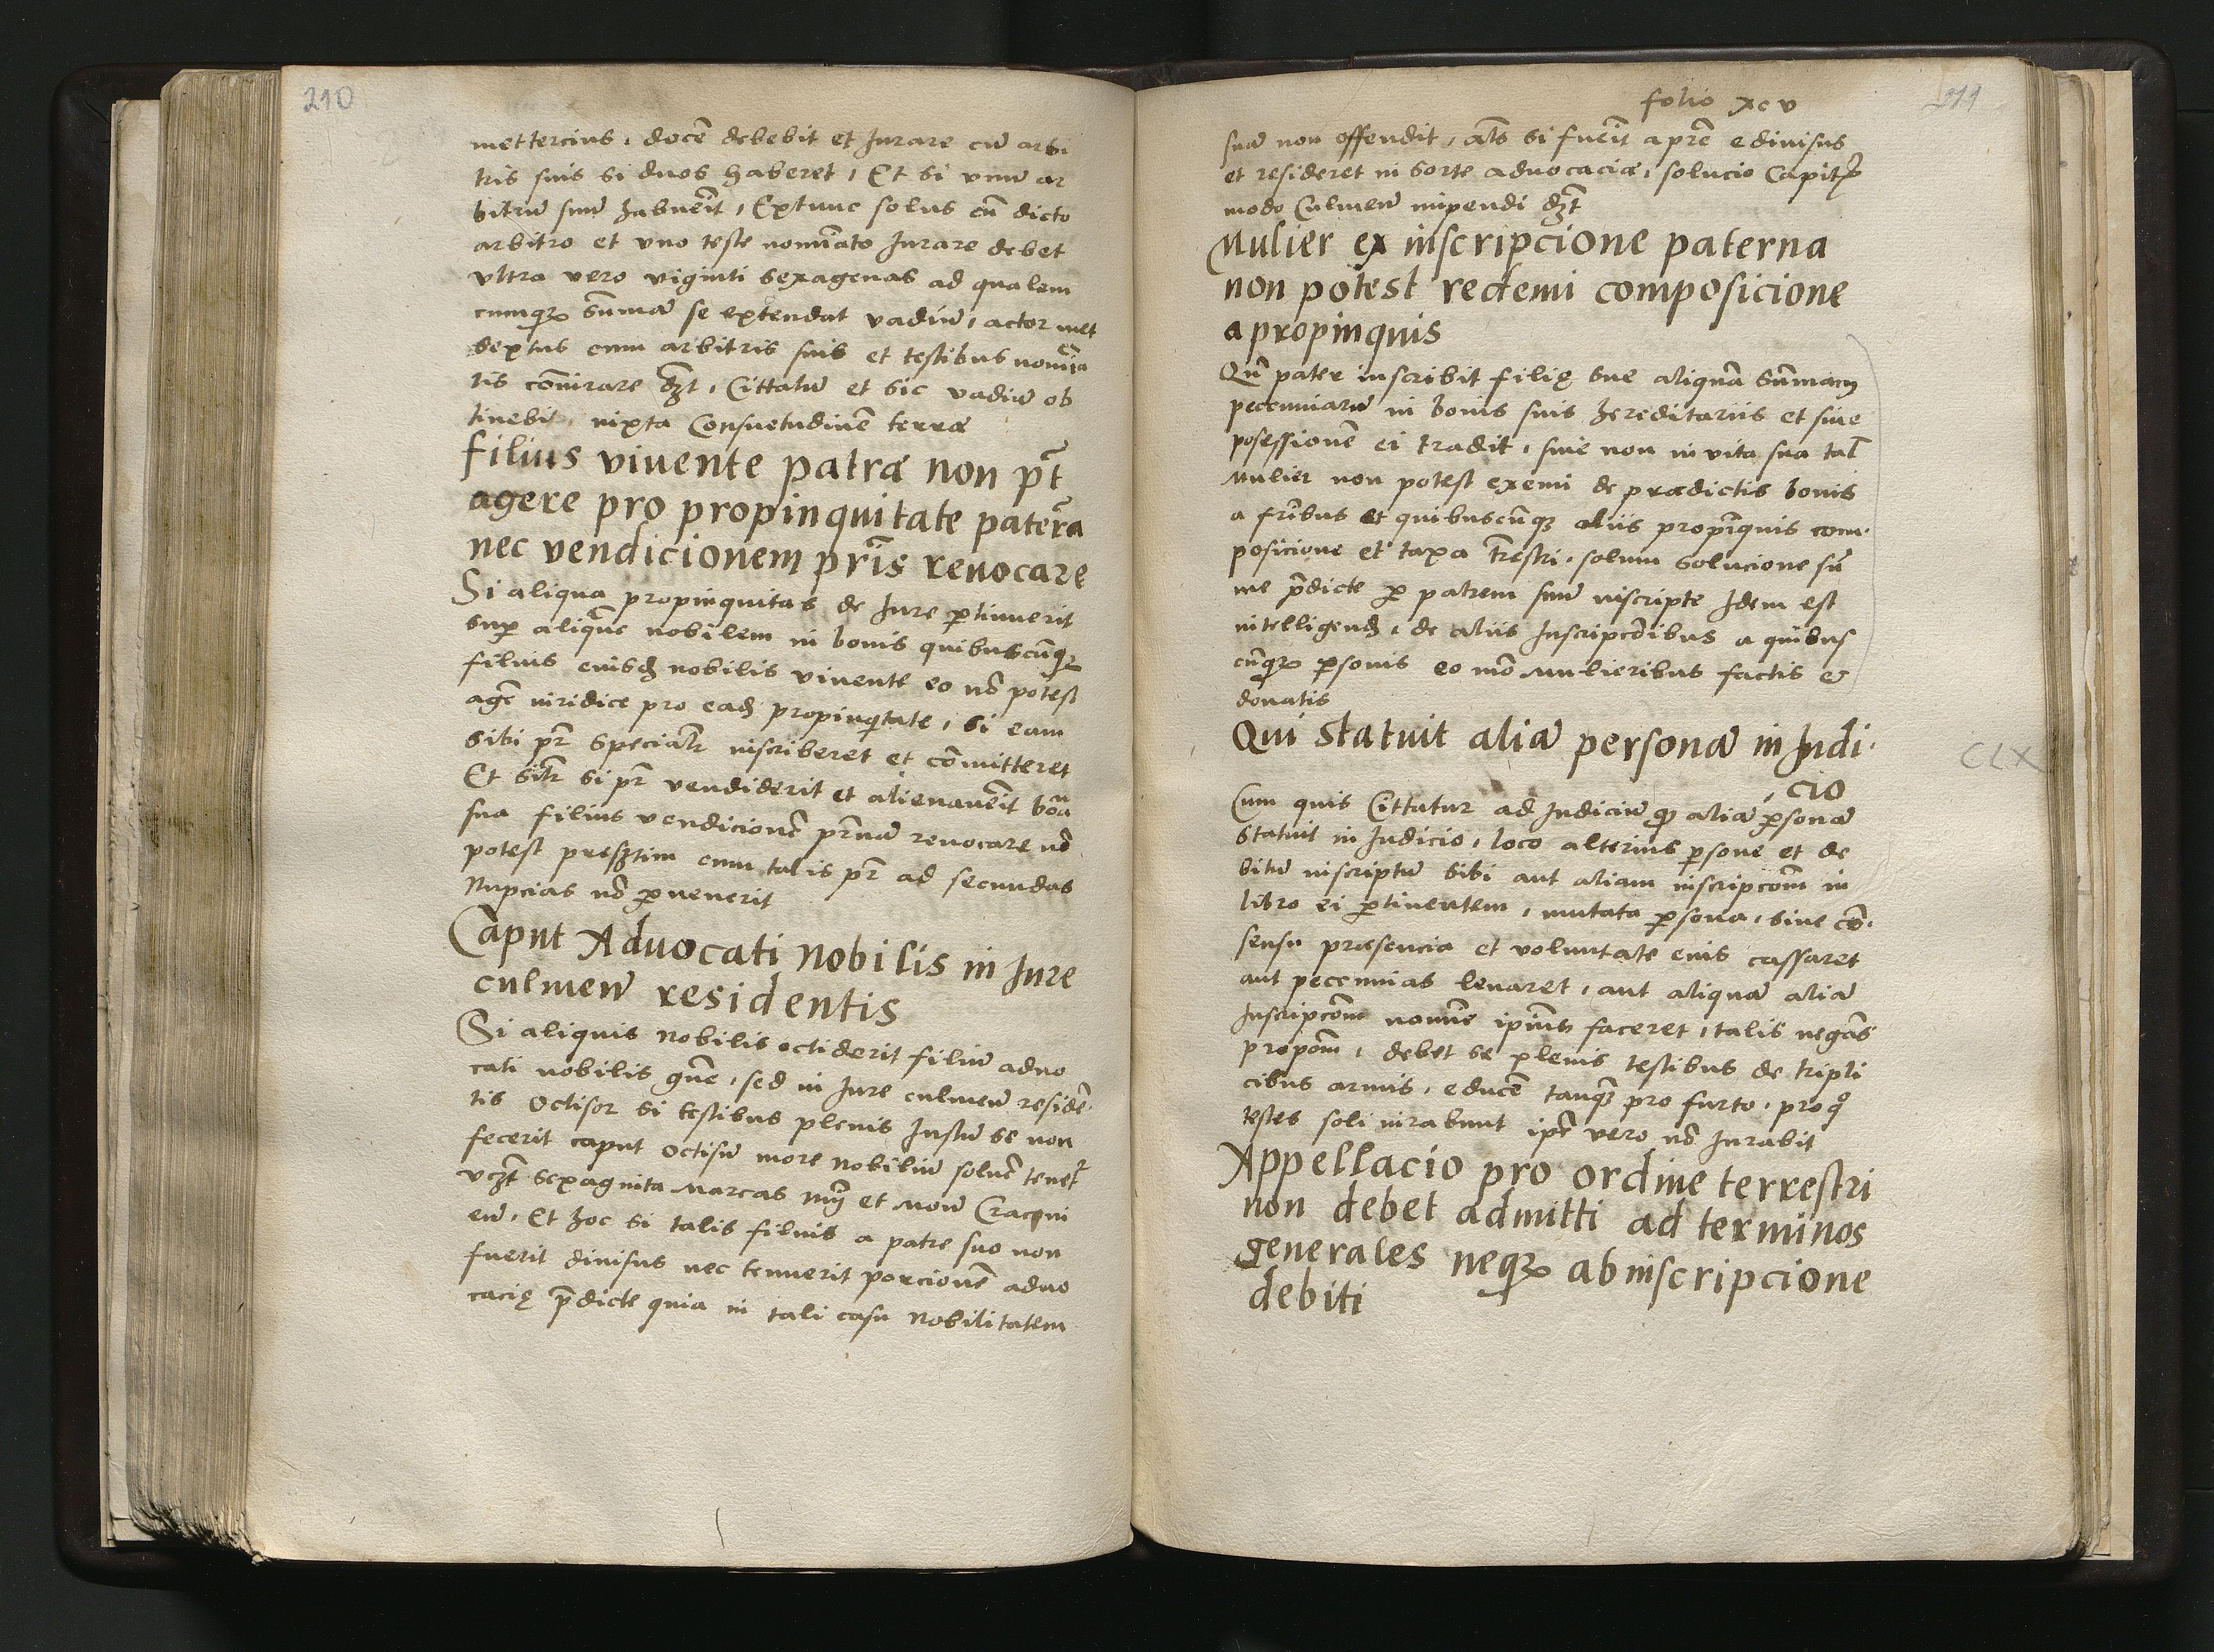 210
mettercius, docē debebit et Jurare cū arbi
tris suis si duos haberet, Et si unū ar
bitrū suū habuerit, Extunc solus cū dicto
arbitro et vno teste nominato Jurare debet
vltra vero viginti sexagenas ad qualem
cumqȝ sūmā se extendat vadiū, actor met
sextus cum arbitris suis et testibus nomīa
tis coniurare dȝt, Cittatū et sic vadiū ob
tinebit, iuxta Consuetudinē terræ
filius viuente patræ non pt̄
agere pro propinquitate paterna
nec vendicionem pr̄is reuocare
Si aliqua propinquitas de Jure ꝑtinuerit
suꝑ aliquē nobilem in bonis quibuscūqȝ
filius eiusdȝ nobilis viuente eo nō potest
agē iuridice pro eadȝ propinqtate, si eam
sibi pr̄ specialr̄ inscriberet et cōmitteret
Et silr̄ si pr̄ vendiderit et alienauerit bona
sua filius vendicionē pr̄nā reuocare nō
potest presertim cum talis pr̄ ad secundas
Nupcias nō ꝑuenerit
Caput Aduocati nobilis in Jure
culmen̄ residentis
Si aliquis nobilis occiderit filiū aduo
cati nobilis gn̄e, sed in Jure culmen̄ residē
tis Occisor si testibus plenis Justū se non
fecerit caput occisū more nobiliū soluē tenet᷑
vcȝt sexaginta Marcas et Mon̄ Cracoui
en̄, Et hoc si talis filius a patre suo non
fuerit diuisus nec tenuerit porcionē aduo
cacię p̄dicte quia in tali casu nobilitatem
folio xcv
211
suā non offendit, alr̄s si fuerit a pr̄e ediuisus
et resideret in sorte aduocaciæ, solucio Capitꝭ
modo Culmen̄ impendi dȝt
Mulier ex inscripcione paterna
non potest redemi composicione
a propinquis
Qn̄ pater inscribit filię sue aliquā sūmam
peccuniarū in bonis suis hereditariis et siue
posessionē ei tradit, siue non in vita sua tal̄
Mulier non potest exemi de prædictis bonis
a fr̄ibus et quibuscūqȝ aliis propīquis com
posicione et taxa tr̄estri, solum solucione sū
me p̄dicte ꝑ patrem suū inscripte Idem est
intelligendȝ, de aliis Inscripcōibus a quibus
cūqȝ ꝑsonis eo mō Mulieribus factis et
donatis
Qui statuit aliā personā in Judi
cio
Cum quis Cittatur ad Judiciū qȝ aliā ꝑsonā
statuit in Judicio, loco alterius ꝑsone et de
bitū inscriptū sibi aut aliam inscripcōm in
libro ei ꝑtinentem, mutata ꝑsona, sine cō
sensu præsencia et voluntate eius cassaret
aut peccunias leuaret, aut aliquā aliā
Inscripcōm nomīe ipius faceret, talis negās
propom̄, debet se plenis testibus de tripli
cibus armis, educē tanqȝ pro furto, pro qͦ
testes soli iurabunt ipē vero nō Jurabit
Appellacio pro ordine terrestri
non debet admitti ad terminos
generales neqȝ ab inscripcione
debiti
CLX